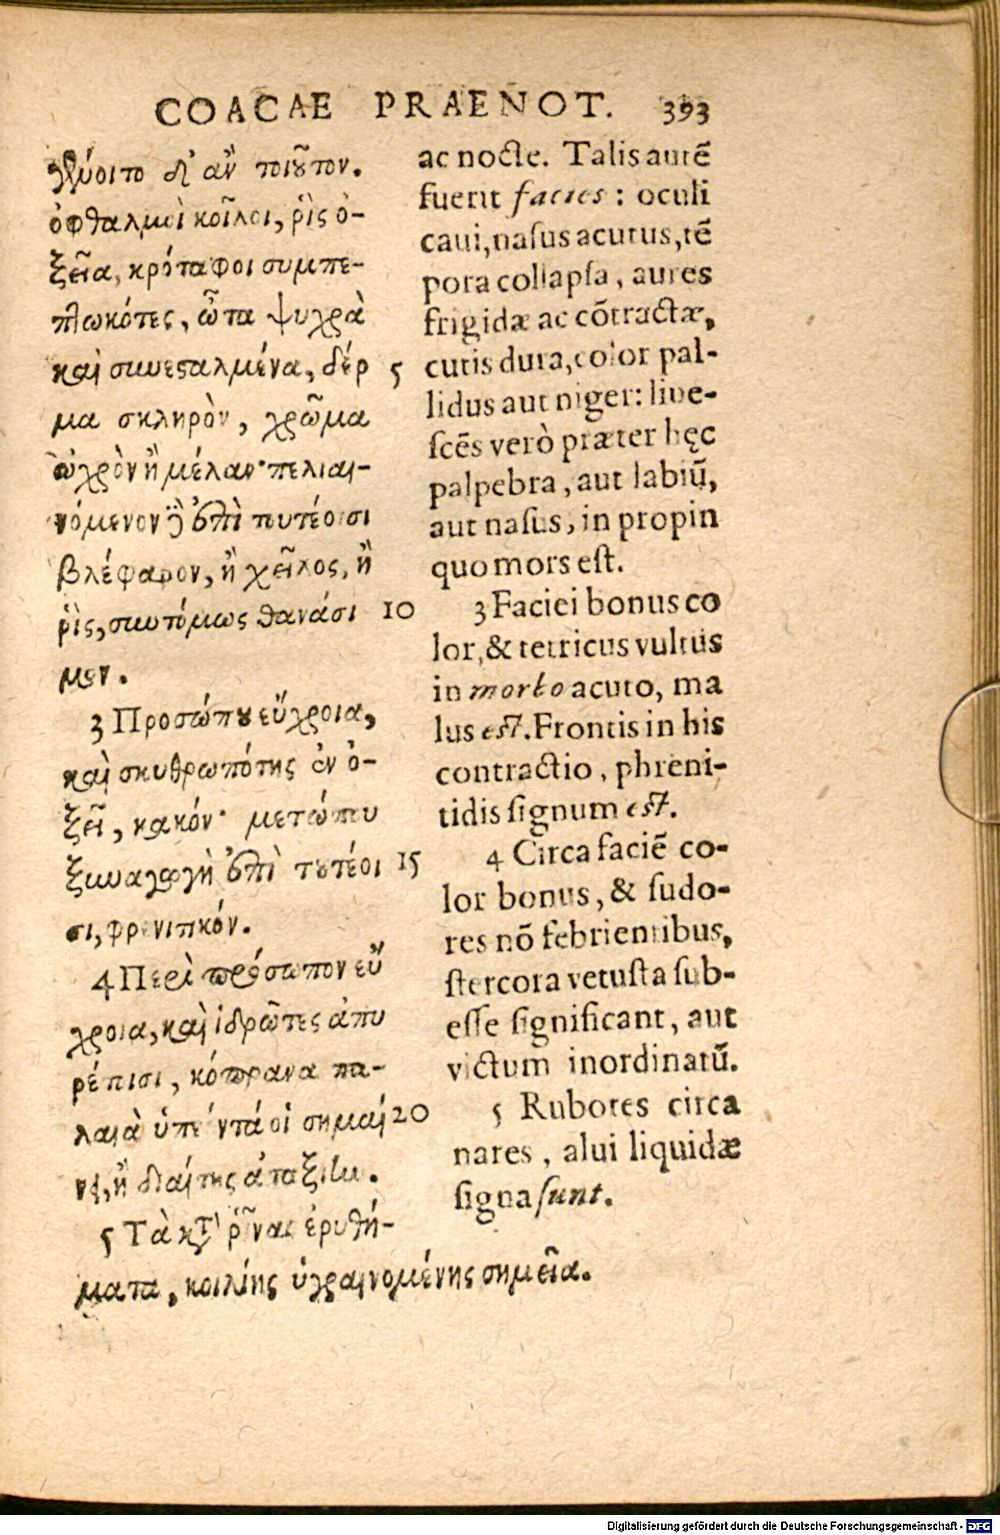 COACAE PRAENOT. 393
γένοιτο δ' ἂν τοιοῦτον.
ὀφθαλμοὶ κοῖλοι, ῥὶς ὀ-
ξεῖα, κρόταφοι συμπε-
πτωκότες, ὦτα ψυχρὰ
καὶ συνεσταλμένα, δέρ
5
μα σκληρὸν, χρῶμα
ὠχρὸν ἢ μέλαν· πελιαι-
νόμενον ἢ ἐπὶ τουτέοισι
βλέφαρον, ἢ χεῖλος, ἢ
ῥὶς, συντόμως θανάσι
10
μον.
3 Προσώπου εὔχροια,
καὶ σκυθρωπότης ἐν ὀ-
ξεῖ, κακόν· μετώπου
ξυναγωγὴ ἐπὶ τουτέοι
15
σι, φρενιτικόν.
4 Περὶ πρόσωπον εὔ
χροια, καὶ ἱδρῶτες ἀπυ
ρέτοισι, κόπρανα πα-
λαιὰ ὑπεόντά οἱ σημαί
20
νει, ἢ διαίτης ἀταξίην.
5 Τὰ κατὰ ῥῖνας ἐρυθή-
ματα, κοιλίης ὑγραινομένης σημεῖα.
ac nocte. Talis autē
fuerit facies: oculi
caui, nasus acutus, tē
pora collapsa, aures
frigidæ ac cōtractæ,
cutis dura, color pal-
lidus aut niger: liue-
scēs verò præter hęc
palpebra, aut labiū,
aut nasus, in propin
quo mors est.
3 Faciei bonus co
lor, & tetricus vultus
in morbo acuto, ma
lus est. Frontis in his
contractio, phreni-
tidis signum est.
4 Circa faciē co-
lor bonus, & sudo-
res nō febrientibus,
stercora vetusta sub-
esse significant, aut
victum inordinatū.
5 Rubores circa
nares, alui liquidæ
signa sunt.
Digitalisierung gefördert durch die Deutsche Forschungsgemeinschaft - DFG